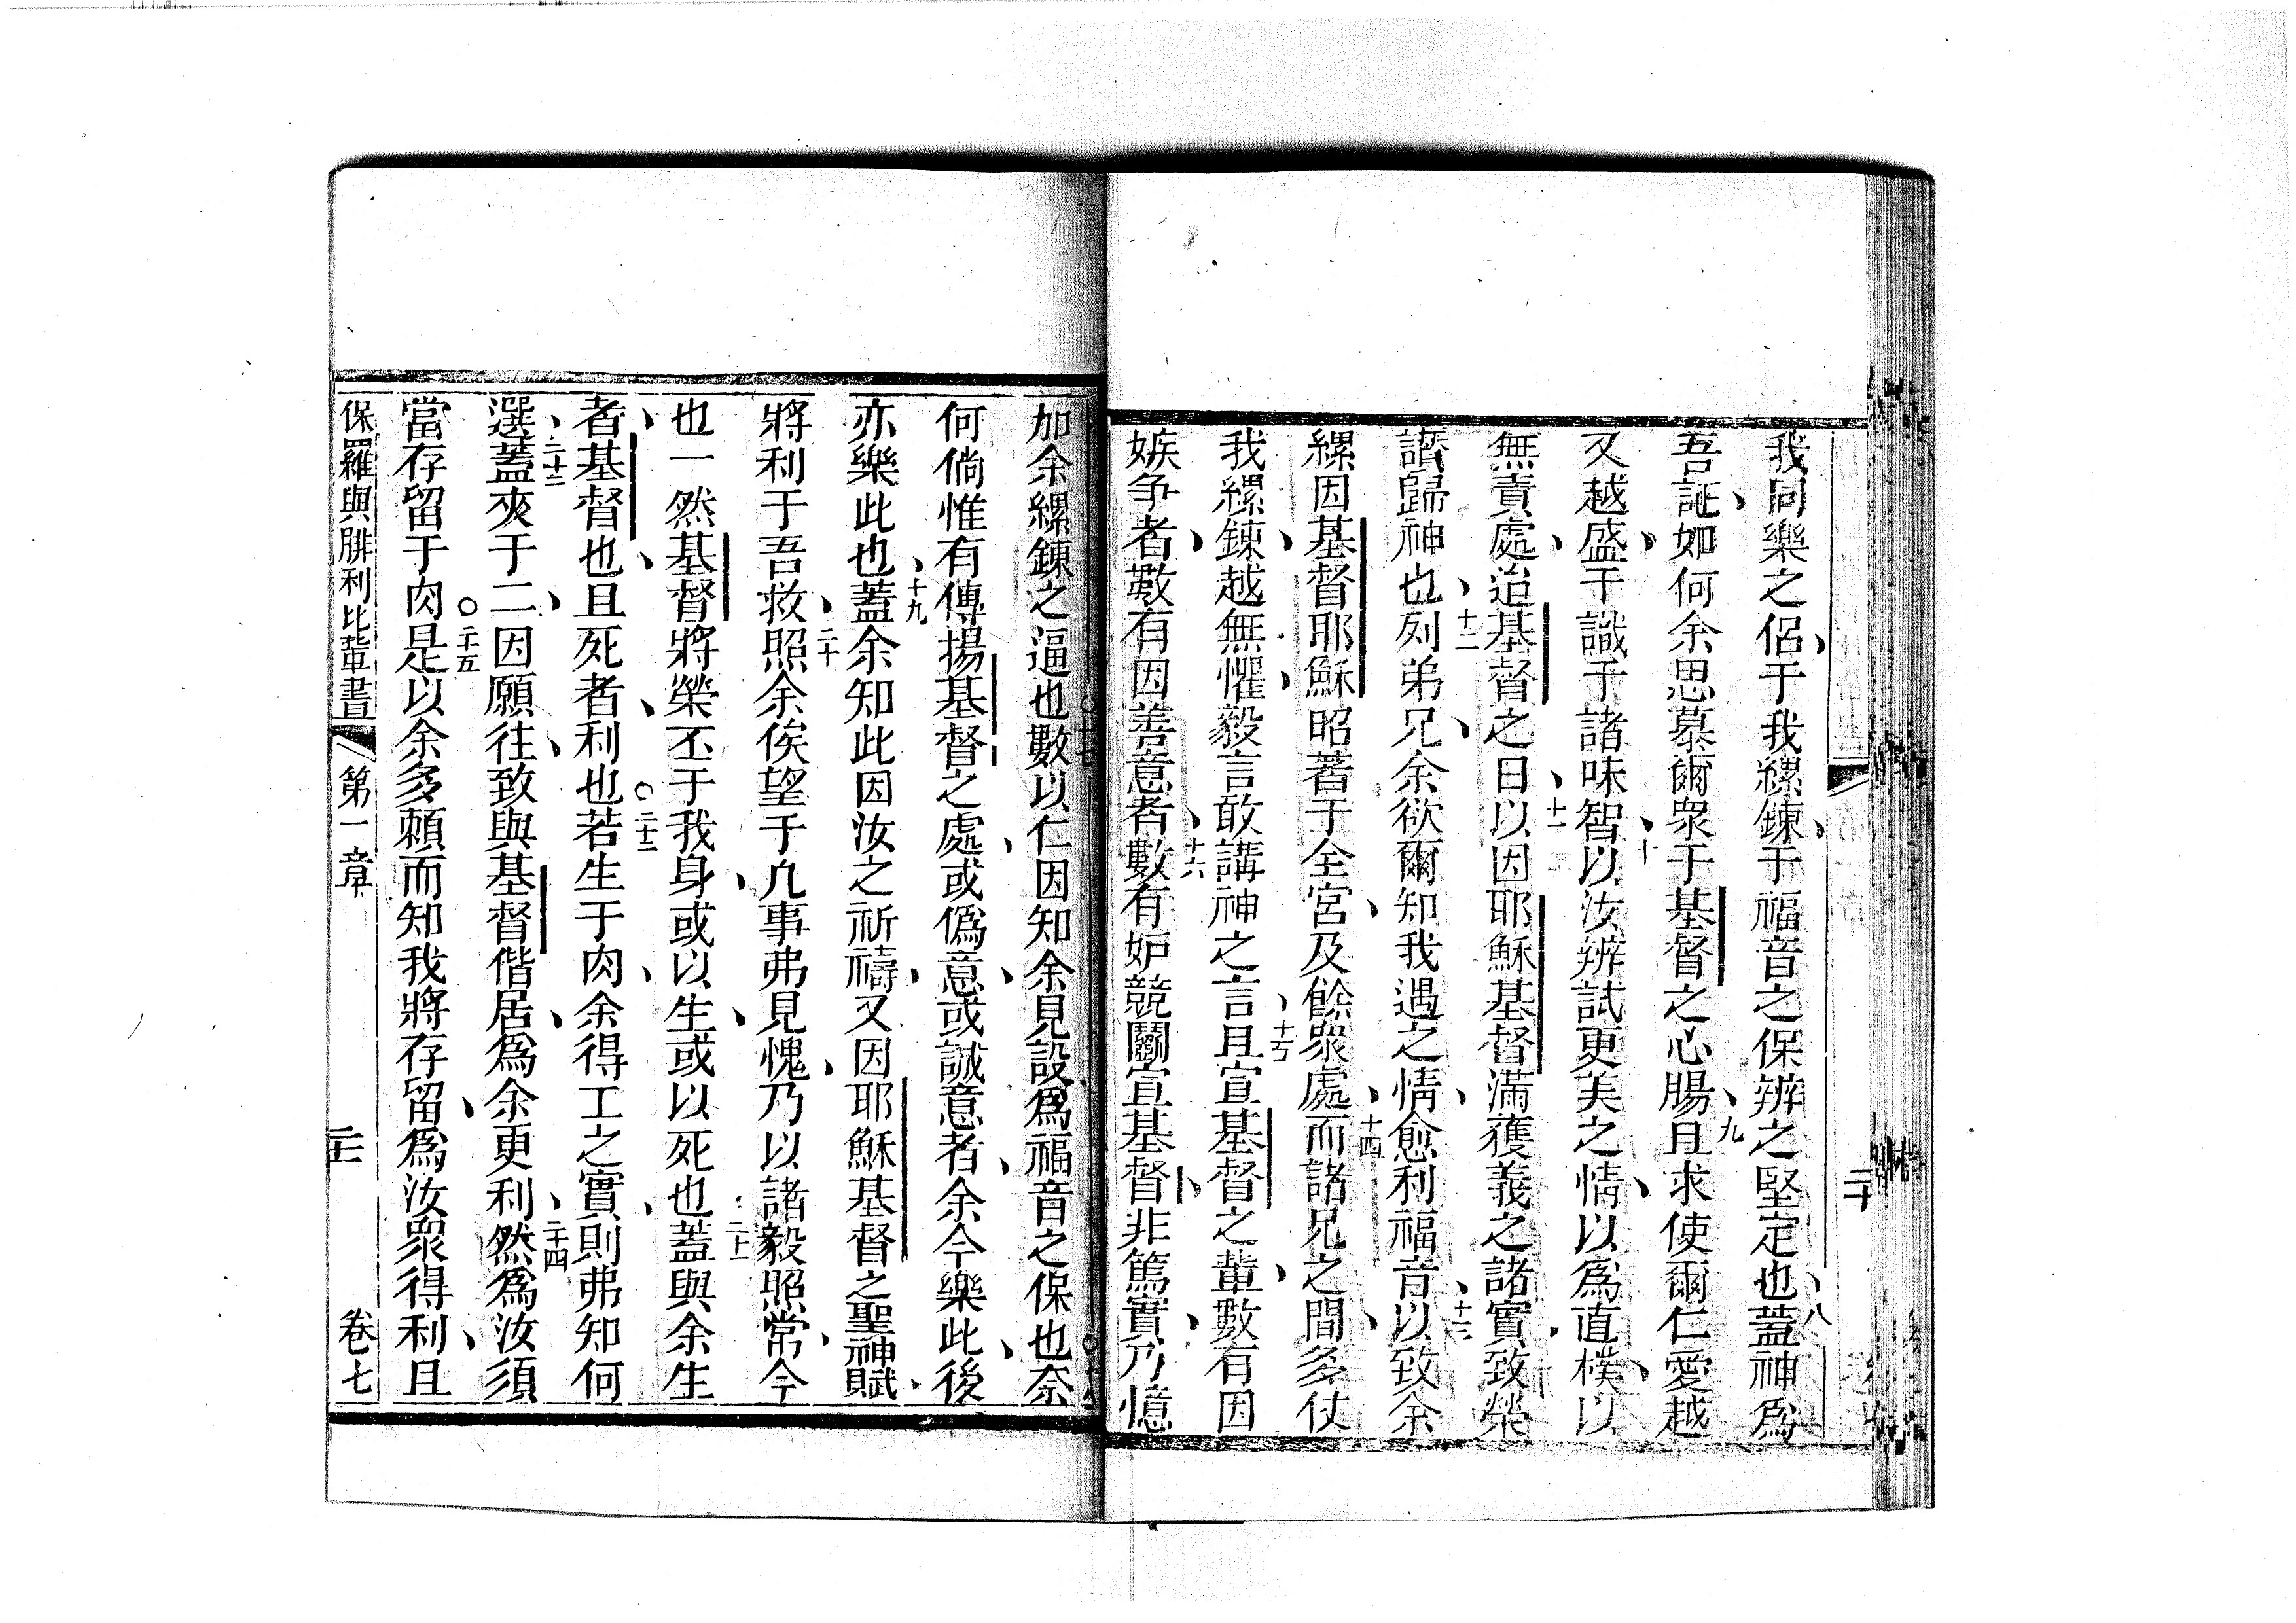 我同樂之侶、于我縲鍊、于福音之保辨之堅定也、八蓋神爲
吾証、如何余思慕爾衆于基督之心腸、九且求使爾仁愛越
又越盛、于識于諸味智、十以汝辨試更美之情、以爲直樸、以
無責處、迨基督之日、十一以因耶穌基督滿獲義之諸實、致榮
讚歸神也、十二列弟兄、余欲爾知我遇之情、愈利福音、十三以致余
縲因基督耶穌昭著于全宮、及餘衆處、十四而諸兄之間、多仗
我縲鍊、越無懼、毅言敢講神之言、十五且宣基督之輩、數有因
嫉争者、數有因善意者、十六數有妒競鬭宣基督、非篤實、乃憶
加余縲鍊之逼也○十七數以仁因知余見設爲福音之保也○十八奈
何倘惟有傳揚基督之處、或僞意、或誠意者、余今樂此、後
亦樂此也、十九蓋余知此因汝之祈禱、又因耶穌基督之聖神賦、
將利于吾救、二十照余俟望于凢事弗見愧、乃以諸毅照常、今
也一然基督將榮丕于我身、或以生、或以死也、二十一蓋與余生
者、基督也、且死者、利也○二十二若生于肉、余得工之實、則弗知何
選、二十三蓋夾于二、因願往、致與基督偕居、爲余更利、二十四然爲汝須
當存留于肉○二十五是以余多頼而知我將存留、爲汝衆得利、且
保羅與腓利比輩書
第一章
二十一
卷七
二十